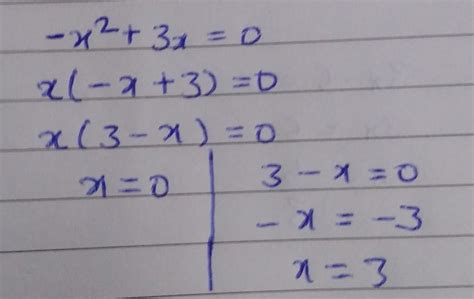 -x² + 3x = 0
x(-x + 3) = 0
x(3 - x) = 0
x = 0 | 3 - x = 0
- x = -3
x = 3